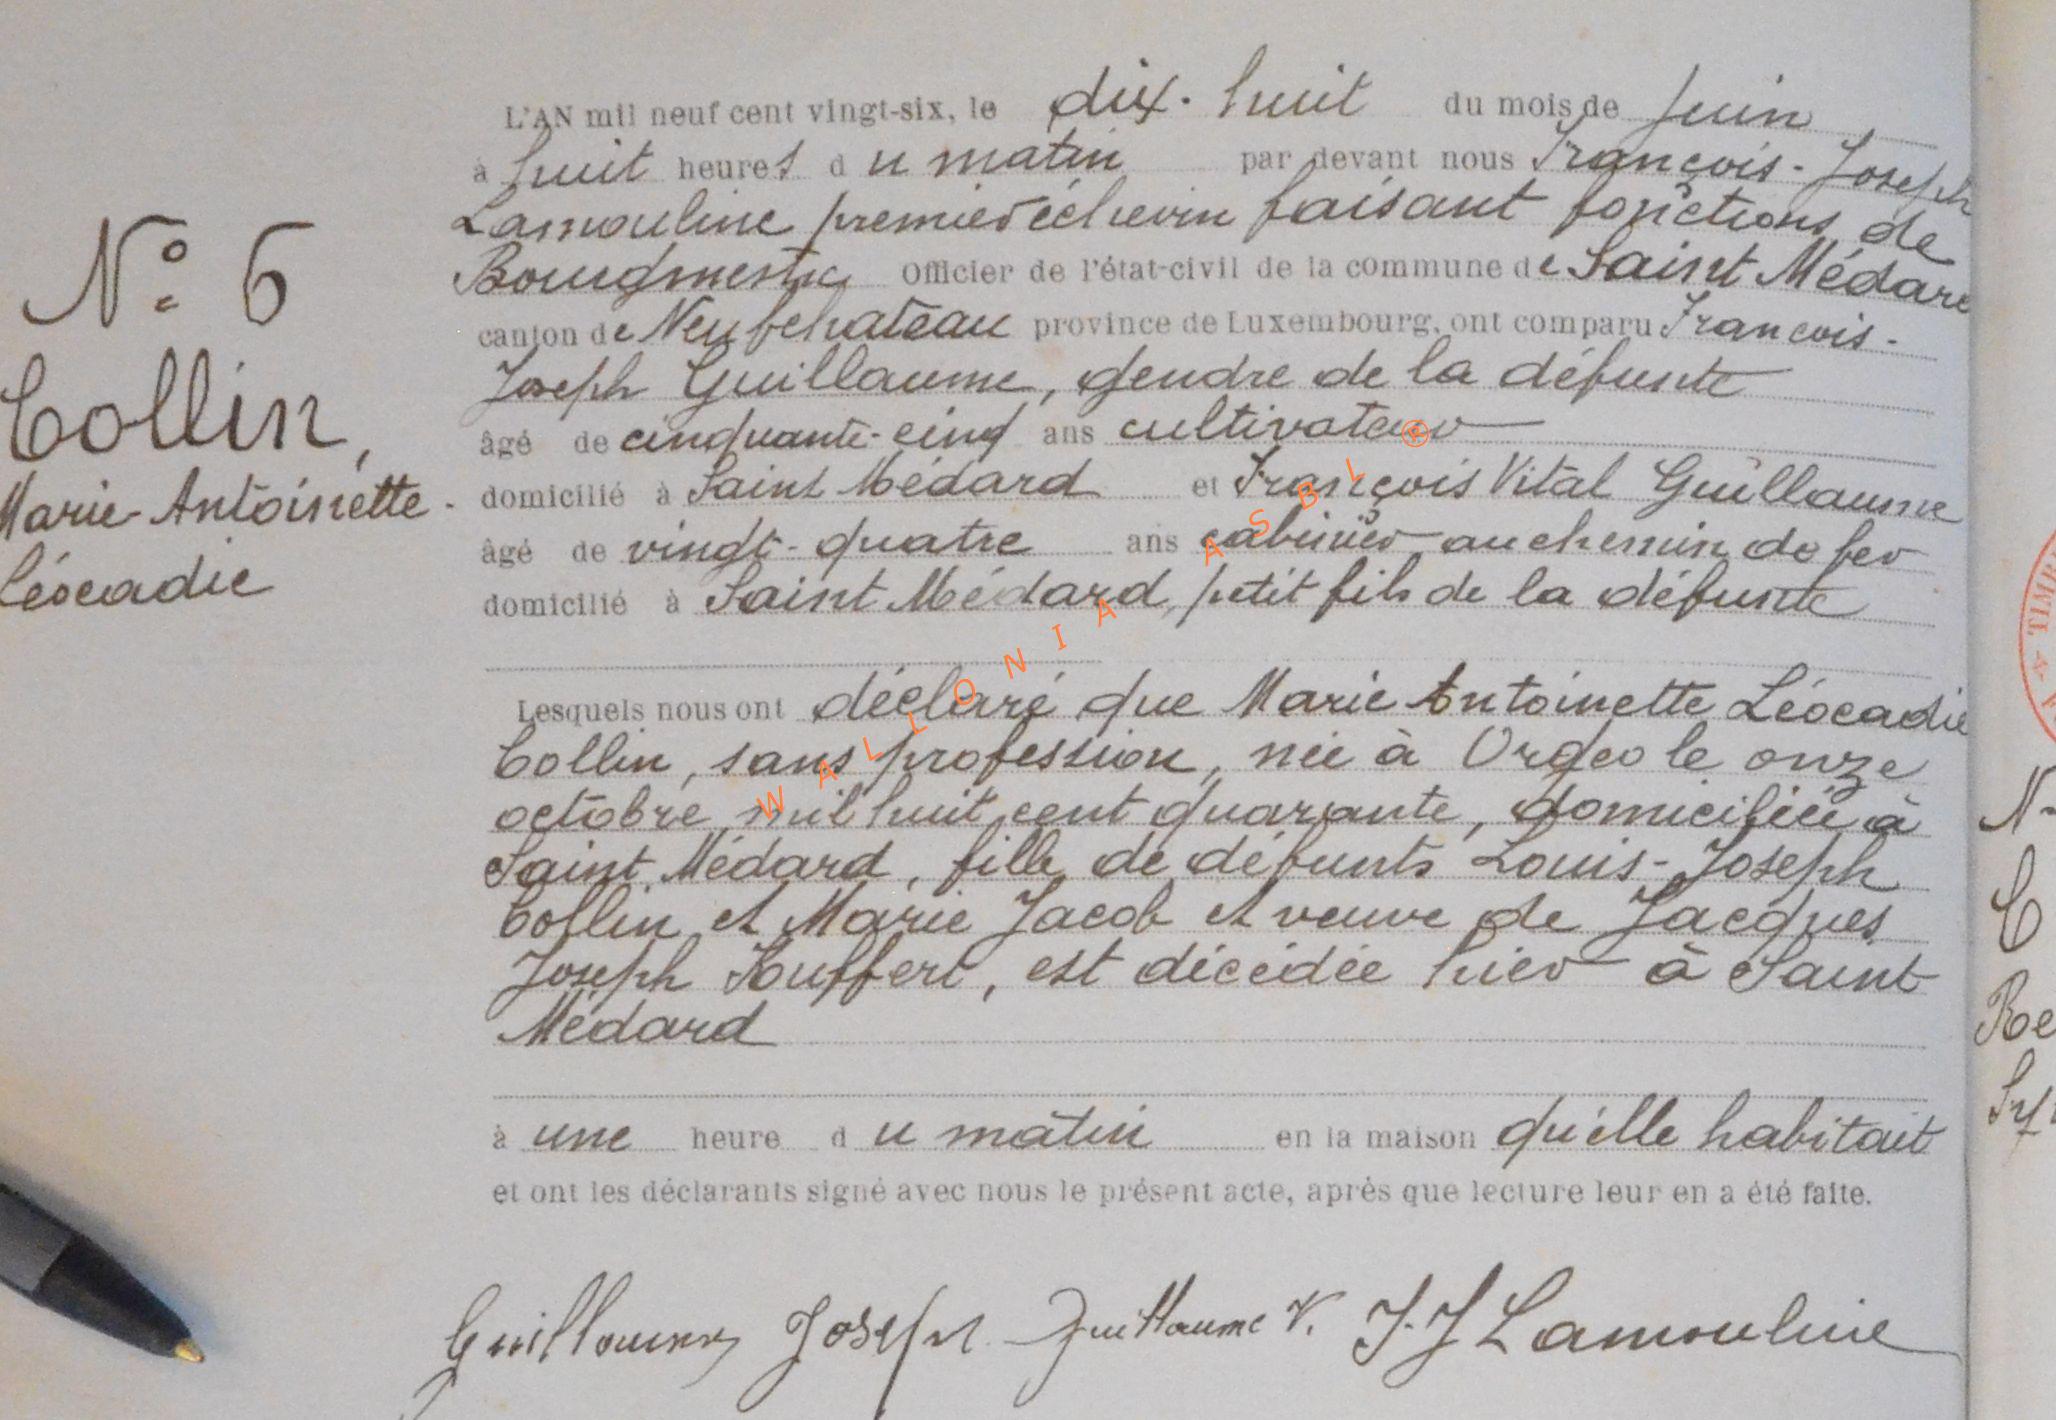 N° 6
Collin,
Marie-Antoinette-
Léocadie
L'AN mil neuf cent vingt-six, le dix-huit du mois de Juin
à huit heures du matin par devant nous François-Joseph
Lamouline premier échevin faisant fonctions de
Bourgmestre Officier de l'état-civil de la commune de Saint Médard
canton de Neufchateau province de Luxembourg, ont comparu François-
Joseph Guillaume, gendre de la défunte
âgé de cinquante-cinq ans cultivateur
domicilié à Saint Médard et François Vital Guillaume
âgé de vingt-quatre ans cabinier au chemin de fer
domicilié à Saint Médard, petit fils de la défunte
Lesquels nous ont déclaré que Marie Antoinette Léocadie
Collin, sans profession, née à Orgeo le onze
octobre mil huit cent quarante, domiciliée à
Saint Médard, fille de défunts Louis-Joseph
Collin et Marie Jacob et veuve de Jacques
Joseph Rouffert, est décédée hier à Saint
Médard
à une heure du matin en la maison qu'elle habitait
et ont les déclarants signé avec nous le présent acte, après que lecture leur en a été faite.
Guillaume Joseph Guillaume V. F. J Lamouline
WALLONIA ASBL ®
TIMBRE
N
C